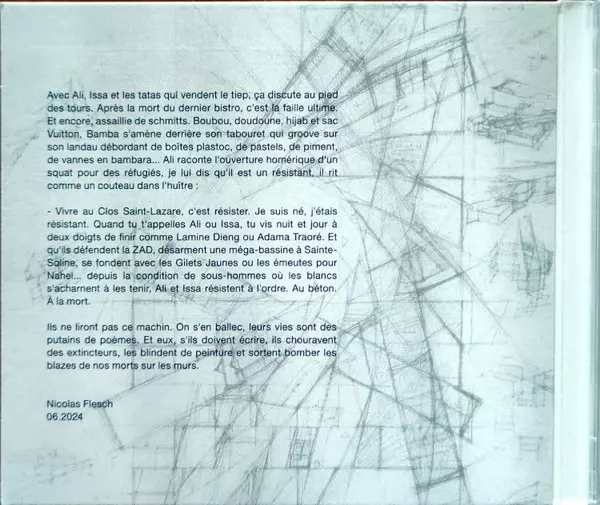 Avec Ali, Issa et les tatas qui vendent le tiep, ça discute au pied
des tours. Après la mort du dernier bistro, c'est la faille ultime.
Et encore, assaillie de schmitts. Boubou, doudoune, hijab et sac
Vuitton, Bamba s'amène derrière son tabouret qui groove sur
son landau débordant de boîtes plastoc, de pastels, de piment,
de vannes en bambara... Ali raconte l'ouverture homérique d'un
squat pour des réfugiés, je lui dis qu'il est un résistant, il rit
comme un couteau dans l'huître :
- Vivre au Clos Saint-Lazare, c'est résister. Je suis né, j'étais
résistant. Quand tu t'appelles Ali ou Issa, tu vis nuit et jour à
deux doigts de finir comme Lamine Dieng ou Adama Traoré. Et
qu'ils défendent la ZAD, désarment une méga-bassine à Sainte-
Soline, se fondent avec les Gilets Jaunes ou les émeutes pour
Nahel... depuis la condition de sous-hommes où les blancs
s'acharnent à les tenir, Ali et Issa résistent à l'ordre. Au béton.
À la mort.
Ils ne liront pas ce machin. On s'en ballec, leurs vies sont des
putains de poèmes. Et eux, s'ils doivent écrire, ils chouravent
des extincteurs, les blindent de peinture et sortent bomber les
blazes de nos morts sur les murs.
Nicolas Flesch
06.2024